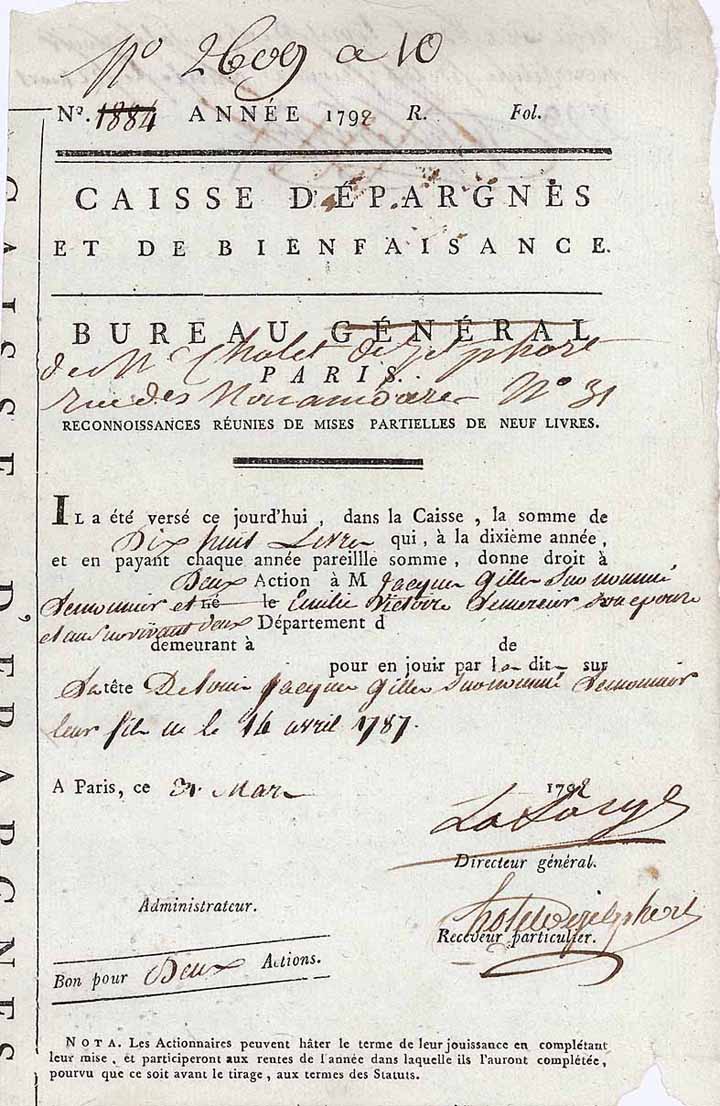 No 2609 a 10
No. 1884 ANNÉE 1792 R. Fol.
CAISSE D'ÉPARGNES
ET DE BIENFAISANCE.
BUREAU GÉNÉRAL
de Mr Cholet de Jetphort
PARIS.
rue des No 31
RECONNOISSANCES RÉUNIES DE MISES PARTIELLES DE NEUF LIVRES.
IL a été versé ce jourd'hui, dans la Caisse, la somme de
Dix huit Livres qui, à la dixième année,
et en payant chaque année pareillle somme, donne droit à
Deux Action à M Jacques Gilles Surnommé
Lemonnier et né le Emilie Victoire son epouse
et au Survivant deux Département d
demeurant à de
pour en jouir par les dits sur
la tête De Louis Jacques Gilles Surnommé Lemonnier
leur fils né le 14 avril 1787.
A Paris, ce 31 Mars 1792
Directeur général.
Administrateur.
Cholet de Jetphort
Receveur particulier.
Bon pour Deux Actions.
NOTA. Les Actionnaires peuvent hâter le terme de leur jouissance en complétant
leur mise, et participeront aux rentes de l'année dans laquelle ils l'auront complétée,
pourvu que ce soit avant le tirage, aux termes des Statuts.
CAISSE D'EPARGNES